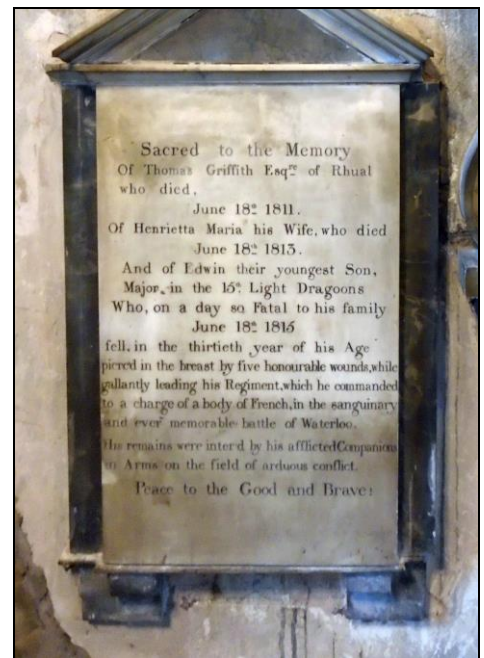 Sacred to the Memory
Of Thomas Griffith Esqre of Rhual
who died,
June 18th 1811.
Of Henrietta Maria his Wife, who died
June 18th 1813.
And of Edwin their youngest Son,
Major, in the 15th Light Dragoons
Who, on a day so Fatal to his family
June 18th 1815
fell, in the thirtieth year of his Age
pierced in the breast by five honourable wounds, while
gallantly leading his Regiment, which he commanded
to a charge of a body of French, in the sanguinary
and ever memorable battle of Waterloo.
His remains were inter'd by his afflicted Companions
in Arms on the field of arduous conflict.
Peace to the Good and Brave!